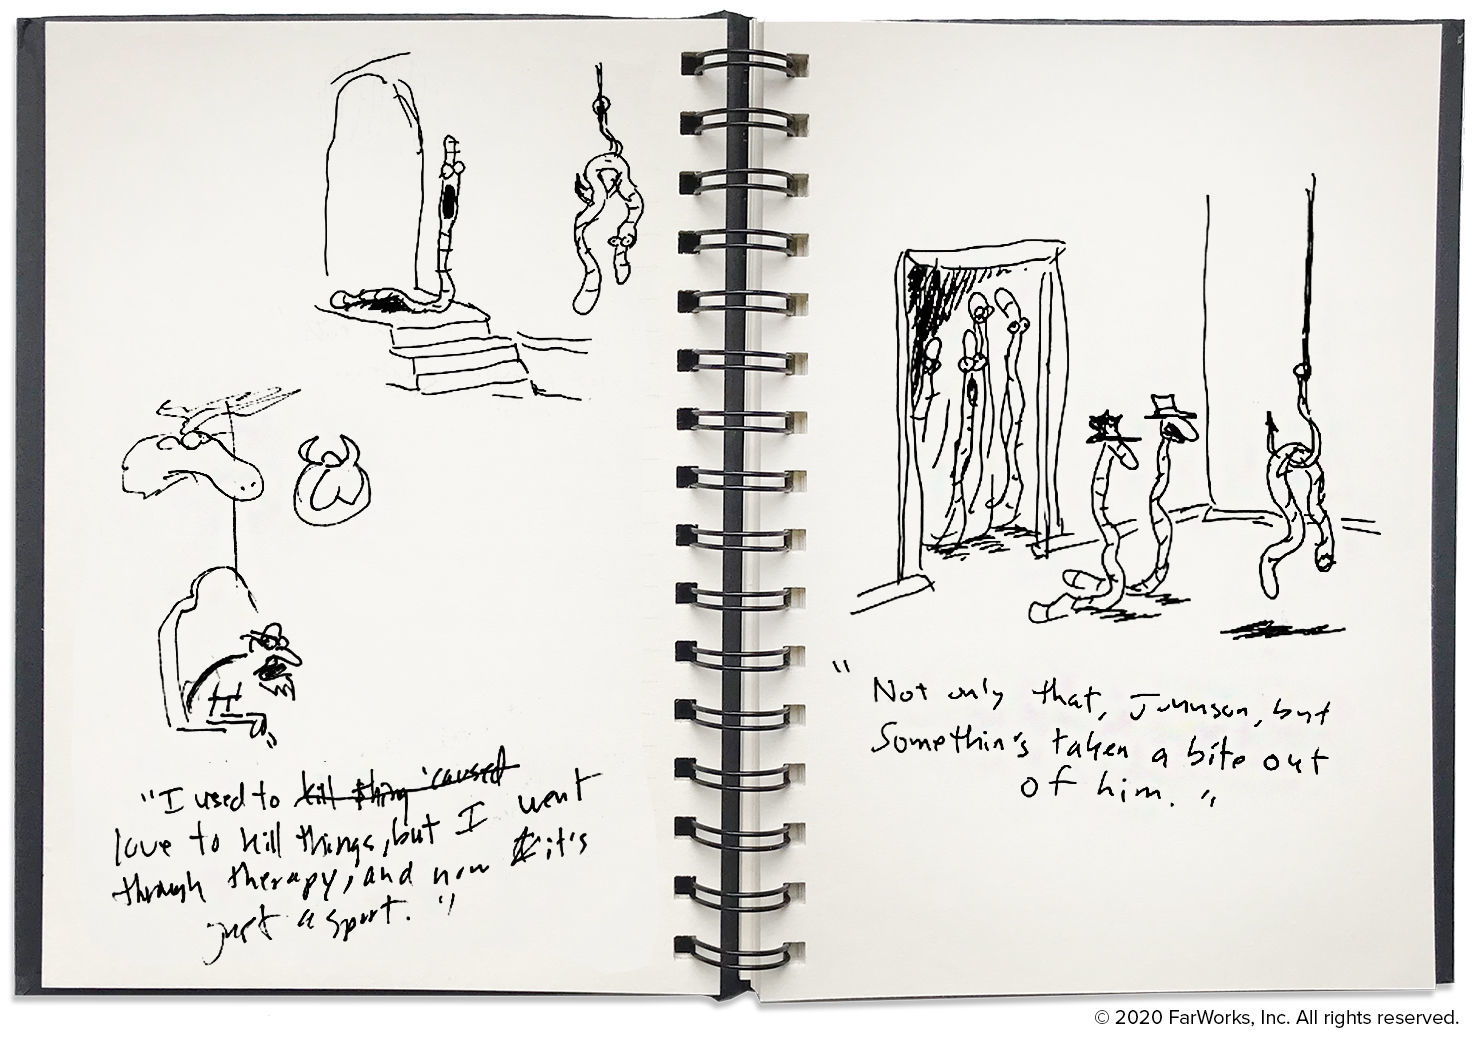 "I used to kill thing 'caused
love to kill things, but I went
through therapy, and now it's
just a sport."
"Not only that, Johnson, but
Somethin's taken a bite out
of him."
© 2020 FarWorks, Inc. All rights reserved.